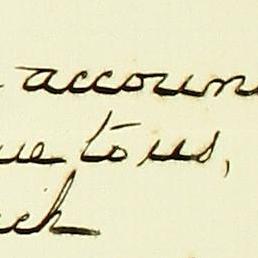 accoun
ue to us,
ich